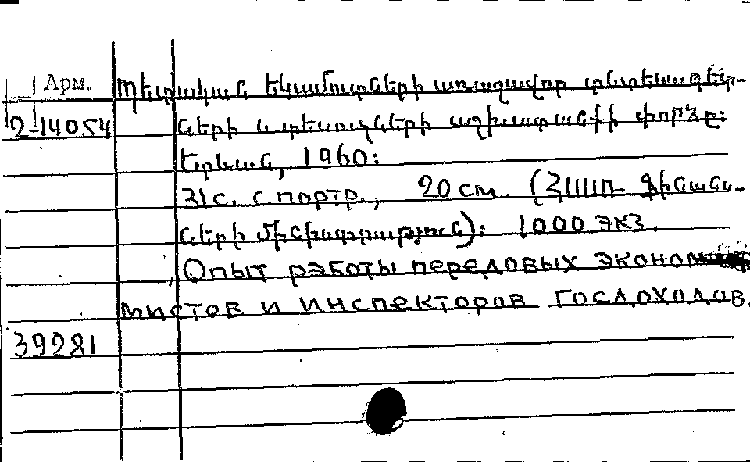 Арм. Պետական եկամուտների առաջավոր տնտեսագետ-
2-14054 ների և տեսուչների աշխատանքի փորձը:
Երևան, 1960:
31 с. с портр., 20 см. (ՀՍՍՌ Ֆինանս-
ների մինիստրություն): 1000 экз.
Опыт работы передовых эконом
мистов и инспекторов госдоходов.
39281